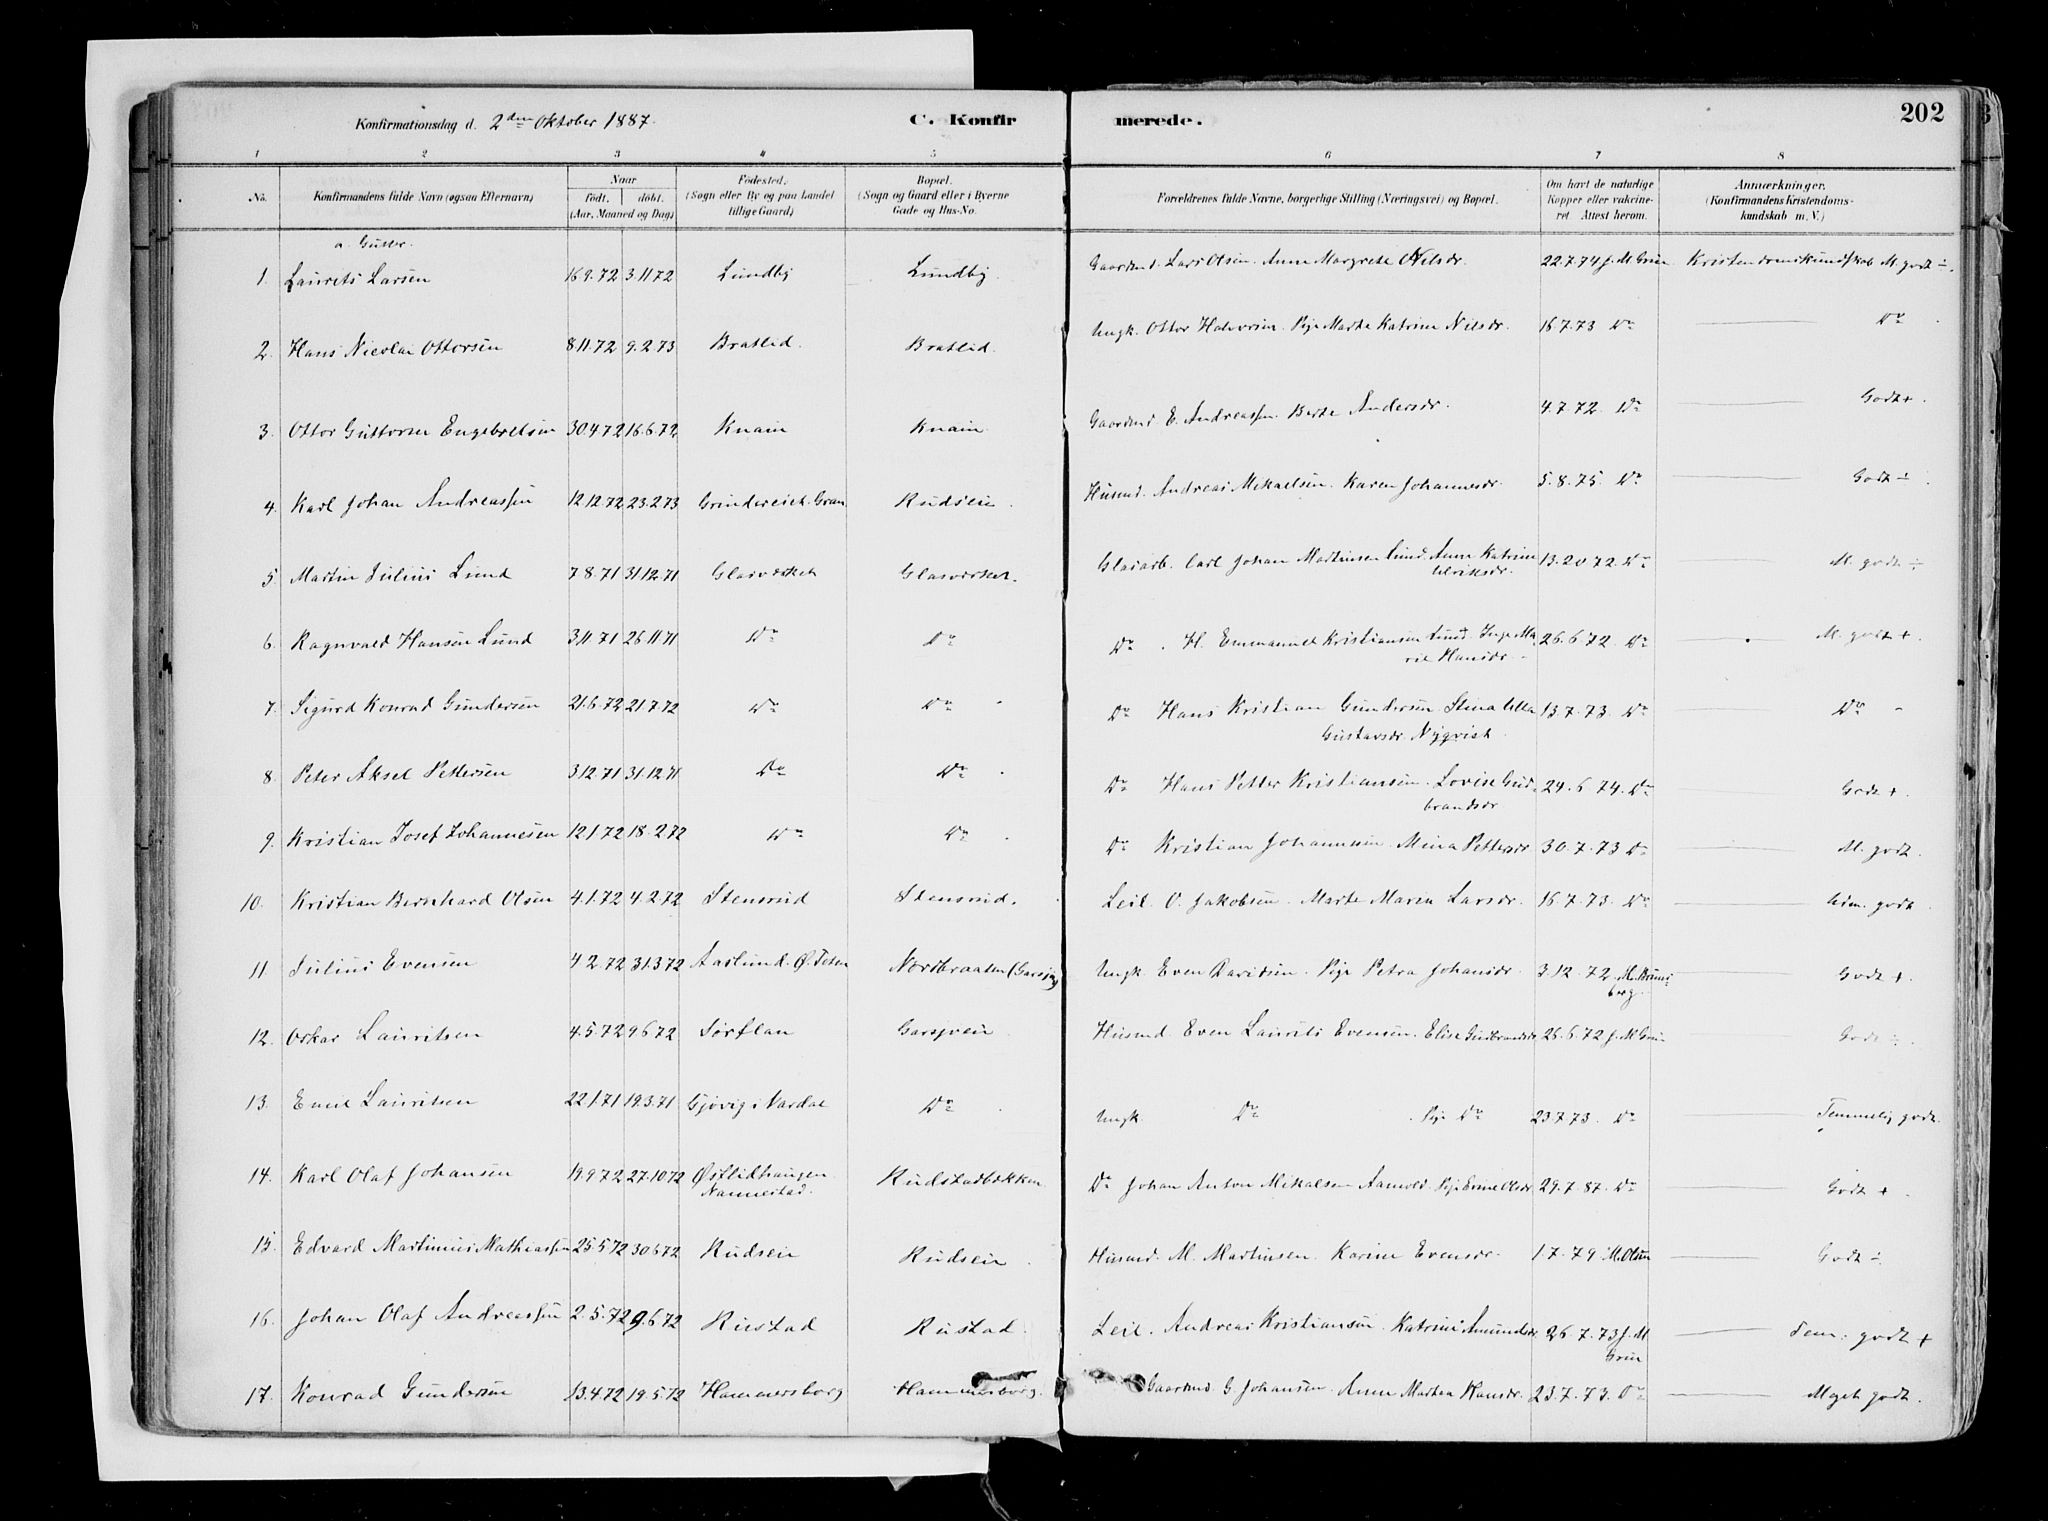 202
Konfirmationsdag d. 2den Oktober 1887.
C. Konfirmerede.
1 2 3 4 5 6 7 8
No. Konfirmandens fulde Navn (ogsaa Efternavn) Naar født. døbt. (Aar, Maaned og Dag) Fødested. (Sogn eller By og paa Landet tillige Gaard) Bopæl. (Sogn og Gaard eller i Byerne Gade og Hus-No. Forældrenes fulde Navne, borgerlige Stilling (Næringsvei) og Bopæl. Om havt de naturlige Kopper eller vakcineret. Attest herom. Anmærkninger. (Konfirmandens Kristendomskundskab m. V.)
a. Gutter.
1. Laurits Larsen 16.9.72 3.11.72 Lundby Lundby Gaardmd. Lars Olsen. Anne Margrete Nilsdr. 22.7.74 J. M. Grin Kristendomskundskab M. godt ÷.
2. Hans Nicolai Ottersen 8.11.72 9.2.73 Bratlid. Bratlid. Ungk. Otter Halvorsen. Pige Marte Katrine Nilsdr. 16.7.73 Do Do
3. Otter Guttorm Engebretsen 30.4.72 16.6.72 Knain Knain Gaardmd E. Andreassen. Berte Andersdr. 4.7.72. Do Godt+.
4. Karl Johan Andreassen 12.12.72 23.2.73 Grindereich. Gran. Rudseie. Husmd. Andreas Mikaelsen. Karen Johannesdr. 5.8.75. Do Godt ÷
5. Martin Julius Lund 7.8.71 31.12.71 Glasværket Glasværket. Glasarb. Carl Johan Martinsen Lund. Anne Katrine Ulriksdr. 13.20.72. Do M. godt ÷
6. Ragnvald Hansen Lund 3.11.71 26.11.71 Do Do Do H. Emmanuel Kristiansen Lund. Inge Marie Hansdr. 26.6.72. Do M. godt +.
7. Sigurd Konrad Gundersen 21.6.72 21.7.72 Do Do Do Hans Kristian Gundersen Stina Ulla Gustavsdr. Nyqvist. 13.7.73. Do Do
8. Peter Aksel Pettersen 3.12.71 31.12.71 Do Do Do Hans Petter Kristiansen. Lovise Gudbrandsdr 24.6.74. Do Godt +.
9. Kristian Josef Johannesen 12.1.72 18.2.72 Do Do Do Kristian Johannesen. Mina Pettersdr 30.7.73 Do M. godt.
10. Kristian Bernhard Olsen 4.1.72 4.2.72 Stensrud Stensrud. Leil. O. Jakobsen. Marte Maria Larsdr. 16.7.73. Do godt
11. Julius Evensen 4.2.72 31.3.72 Aaslund. Ø. Toten Nordbraaten (Garsjø) Ungk. Even Davidsen. Pige Petra Johansdr. 3.12.72. M. Bramberg. Godt +.
12. Oskar Lauritsen 4.5.72 9.6.72 Sørflan Garsjøeie Husmd. Even Laurits Evensen. Elise Gudbrandsdr 26.6.72 J. M. Grin Godt ÷.
13. Emil Lauritsen 22.1.71 19.3.71 Gjøvig i Vardal Do Ungk. Do Pige Do 23.7.73. Do Temmelig godt.
14. Karl Olaf Johansen 19.9.72 27.10.72 Østlidhaugen Nannestad. Rudstadbakken Do Johan Anton Mikalsen Aamold. Pige Olsdr 29.7.87. Do Godt +.
15. Edvard Martinius Mathiassen 25.5.72 30.6.72 Rudseie Rudseie Husmd. M. Martinsen. Karine Evensdr. 1.7.79 M. Olsen Godt ÷.
16. Johan Olaf Andreassen 2.5.72 9.6.72 Rustad Rustad. Leil. Andreas Kristiansen. Katrine Amundsdr 26.7.73 J. M. Grin Tem. godt +
17. Konrad Gundersen 13.4.72 19.5.72 Hammersborg Hammersborg. Gaardmd. G. Johansen. Anne Mathea Hansdr. 23.7.73. Do Maget godt.